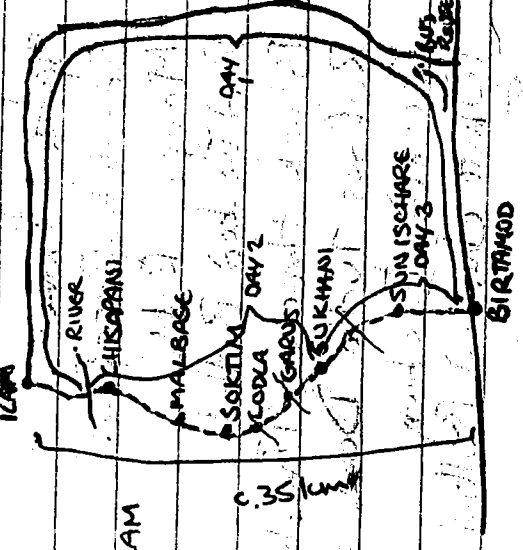 ILAM
RIVER
CHISAPANI
MALBASE
SOKTIM
LODLA
GARUS
SUKHANI
SUNISCHARE
BIRTAMOD
DAY 1
DAY 2
DAY 3
BUS
ROUTE
c.35 kms
AM